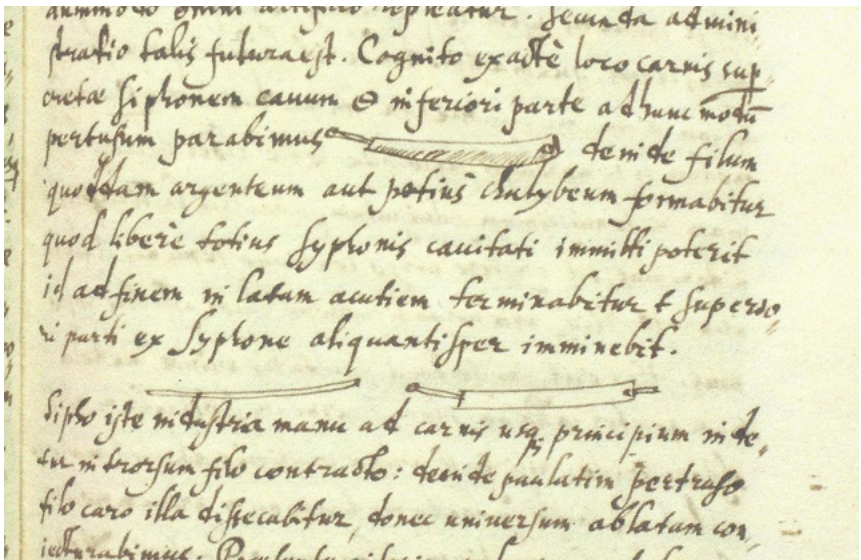 stratio talis futura est. Cognito exactè loco carnis sup
cretæ siphonem cauum & inferiori parte ad hunc modū
pertusum parabimus deinde filum
quoddam argenteum aut potius chalybeum formabitur
quod liberè totius syphonis cauitati immitti poterit
id ad finem in latam acutiem terminabitur & superio,
ri parti ex syphone aliquantisper imminebit.
sipho iste industria manu ad carnis usq, principium inde,
tur introrsum filo contracto: deinde paulatim pertruso
filo caro illa dissecabitur, donec uniuersum ablatam con,
iecturabimus.